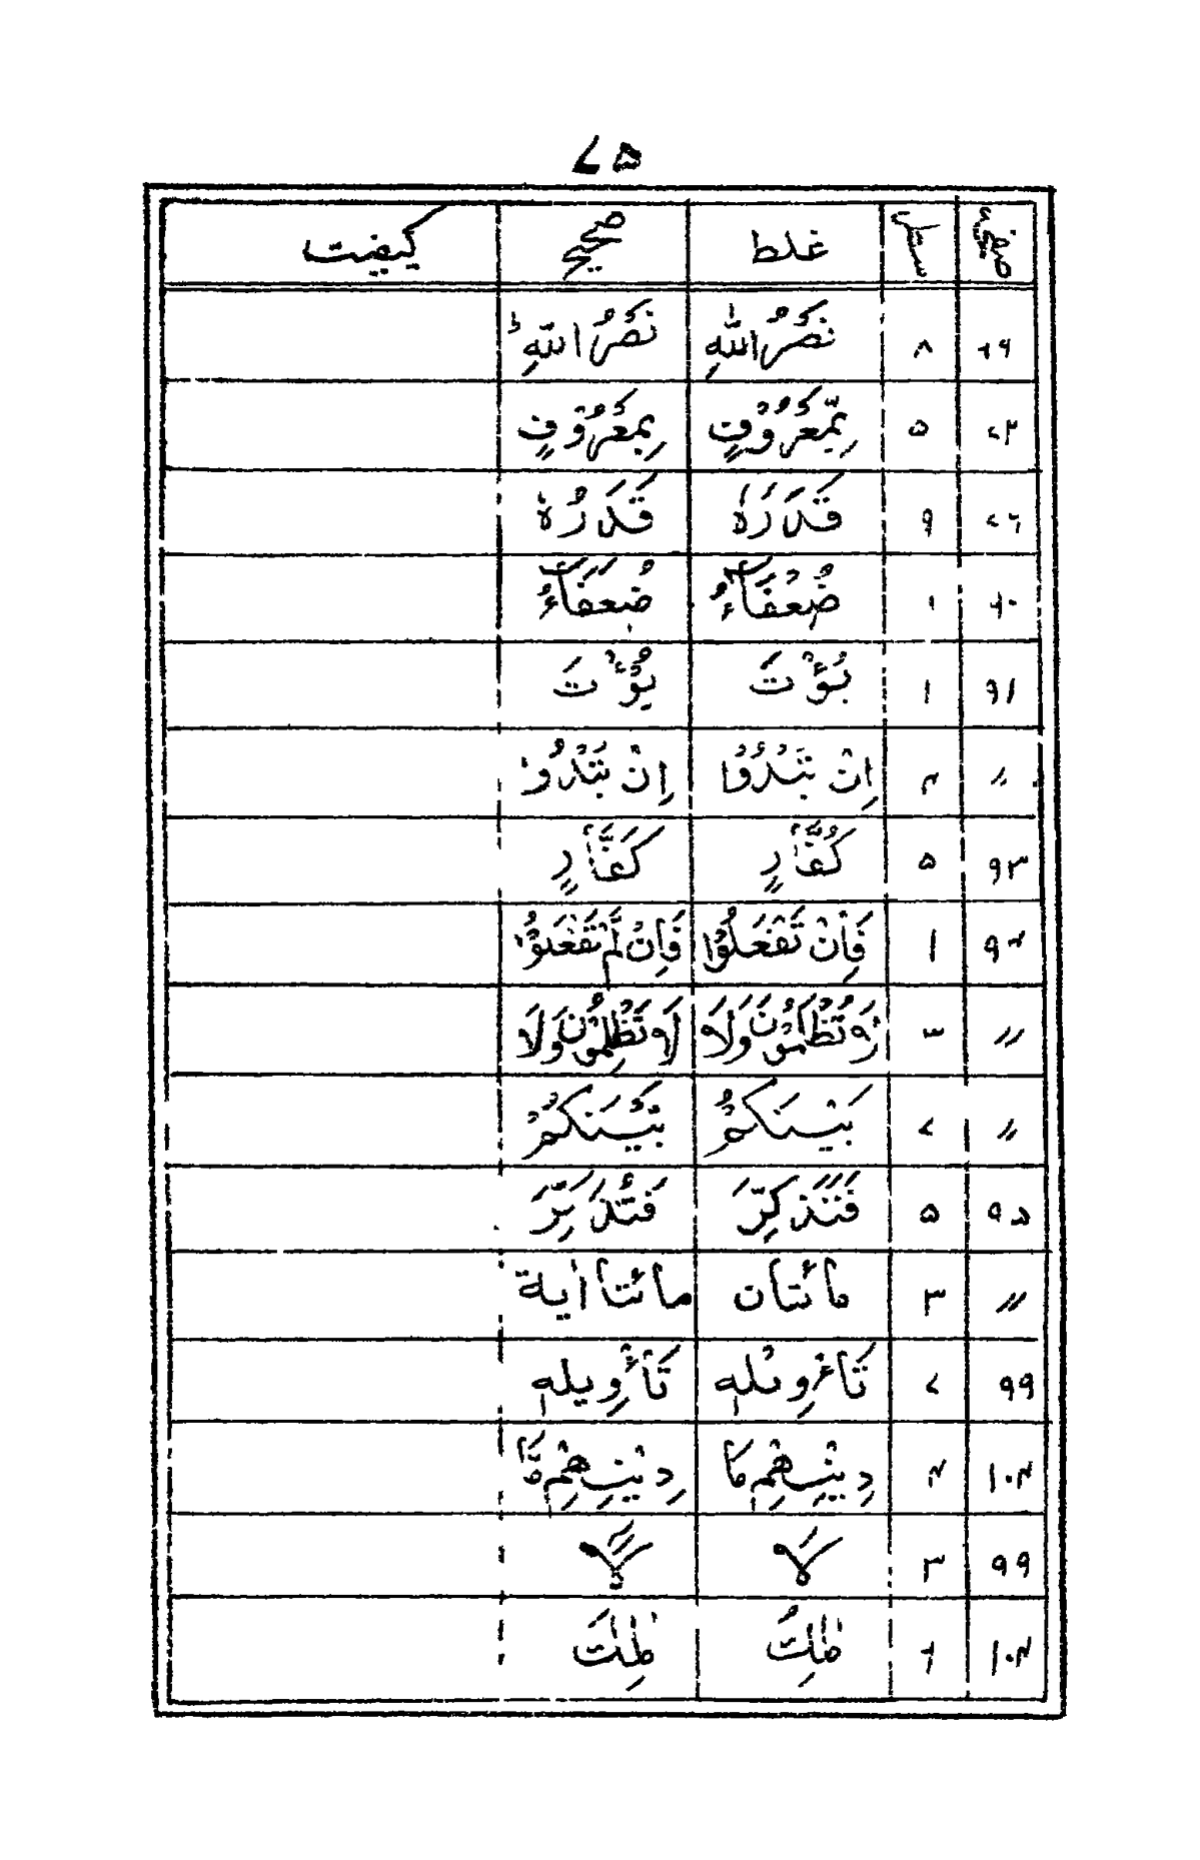 ۷۵
صفحہ سطر غلط صحیح کیفیت
۶۹ ۸ نَصْرُ اللّٰهِ نَصْرُ اللّٰهِ ؕ
۷۲ ۵ بِمَّعْرُوْفٍ بِمَعْرُوْفٍ
۷۶ ۹ قَدَرَهٗ قَدَرُهٗ
۱ ضُعْفَآءُ ضُعَفَآءُ
۹۱ ۱ يُؤْتَ يُّؤْتَ
〃 ۴ اِنْ تَبْدُوْا اِنْ تُبْدُوا
۹۳ ۵ كُفَّارٍ كَفَّارٍ
۹۴ ۱ فَاِنْ تَفْعَلُوْا فَاِنْ لَّمْ تَفْعَلُوْا
〃 ۳ تُظْلَمُوْنَ وَلَا لَا تَظْلِمُوْنَ وَلَا
〃 ۷ بَيْنَكُمْ بَّيْنَكُمْ
۹۵ ۵ فَتَذَكِّرَ فَتُذَكِّرَ
〃 ۳ مائتان مائتا اٰية
۹۹ ۷ تَاْوِيْلِهٖ تَأْوِيلِهٖ
۱۰۴ ۴ دِيْنِهِمْ مَا دِيْنِهِمْ مَّا
۹۹ ۳ لَا
۱۰۴ ۶ مٰلِكُ مٰلِكَ